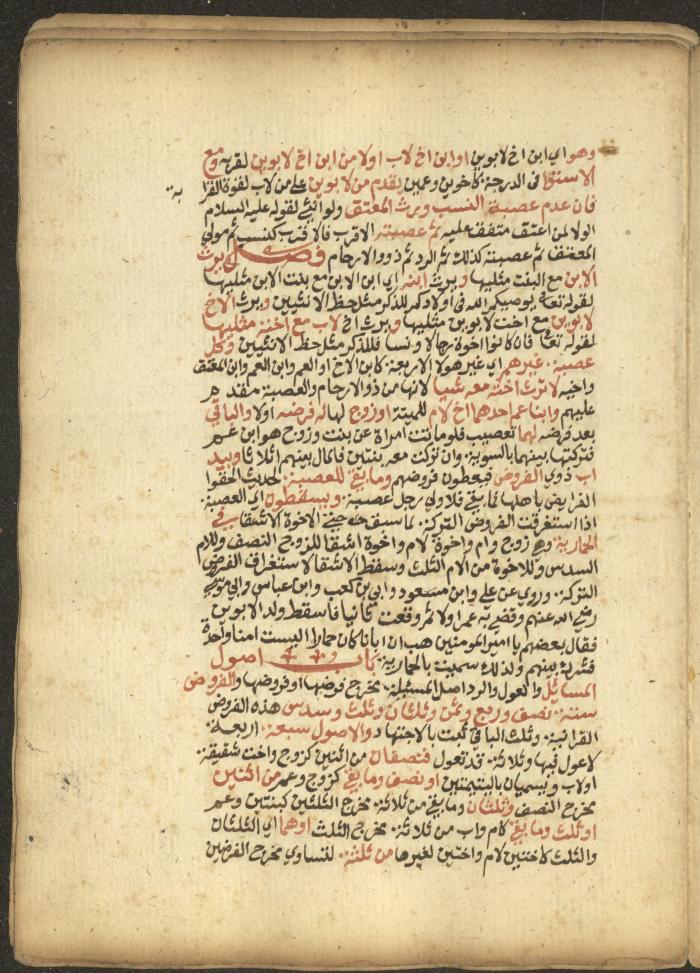 وهو اي ابن اخ لابوين او ابن اخ لاب اولا من ابن ابن اخ لابوين لقربه ومع
الاستوا في الدرجة كاخوين وعمين يقدم من لابوين علي من لاب لقوة القرا
بة
فان عدم عصبة النسب ورث المعتق ولو انثي لقوله عليه السلام
الولا لمن اعتق متفق عليه ثم عصبته الاقرب فالاقرب كنسب ثم مولي
المعتق ثم عصبته كذلك ثم الرد ثم ذووا الارحام فصل يرث
الابن مع البنت مثليها ويرث ابنه اي ابن الابن مع بنت الابن مثليها
لقوله تعا يوصيكم الله في اولادكم للذكر مثل حظ الانثيين ويرث الاخ
لابوين مع اخت لابوين مثليها ويرث اخ لاب مع اخته مثليها
لقوله تعا فان كانوا اخوة رجالا ونسا فللذكر مثل حظ الانثيين وكل
عصبة غيرهم اي غير هولا الاربعة كابن الاخ او العم وابن العم وابن المعتق
واخيه لا ترث اخته معه شيا لانها من ذو الارحام والعصبة مقدم
عليهم وابنا عم احدهما اخ لام للميتة او زوج لها له فرضه اولا والباقي
بعد فرضه لهما تعصيب فلو ماتت امراة عن بنت وزوج هو ابن عم
فتركتها بينهما بالسوية وان تركت معه بنتين فالمال بينهم اثلاثا ويبد
اب ذوي الفروض فيعطون فروضهم وما بقي للعصبة لحديث الحقوا
الفرايض باهلها فما بقي فلا ولي رجل عصبة ويسقطون اي العصبة
اذا استغرقت الفروض التركة لما سبق حتي الاخوة الاشقا في
الحمارية وهي زوج وام واخوة لام واخوة اشقا للزوج النصف وللام
السدس وللاخوة من الام الثلث وسقط الاشقا لاستغراق الفروض
التركة وروي عن علي وابن مسعود وابي بن كعب وابن عباس وابي موسي
رضي الله عنهم وقضي به عمر اولا ثم وقعت ثانيا فاسقط ولد الابوين
فقال بعضهم يا امير المومنين هب ان ابانا كان حمارا اليست امنا واحدة
فشرك بينهم ولذلك سميت بالحمارية باب اصول
المسائل والعول والرد اصل المسئلة مخرج فرضها او فروضها والفروض
ستة نصف وربع وثمن وثلثان وثلث وسدس هذه الفروض
القرانية وثلث الباقي ثبت بالاجتهاد والاصول سبعة اربعة
لا عول فيها وثلاثة قد تعول فنصفان من اثنين كزوج واخت شقيقة
او لاب ويسميان باليتيمتين او نصف وما بقي كزوج وعم من اثنين
مخرج النصف وثلثان وما بقي من ثلاثة مخرج الثلثين كبنتين وعم
او ثلث وما بقي كام واب من ثلاثة مخرج الثلث او هما اي الثلثان
والثلث كاختين لام واختين لغيرها من ثلثة لتساوي مخرج الفرضين